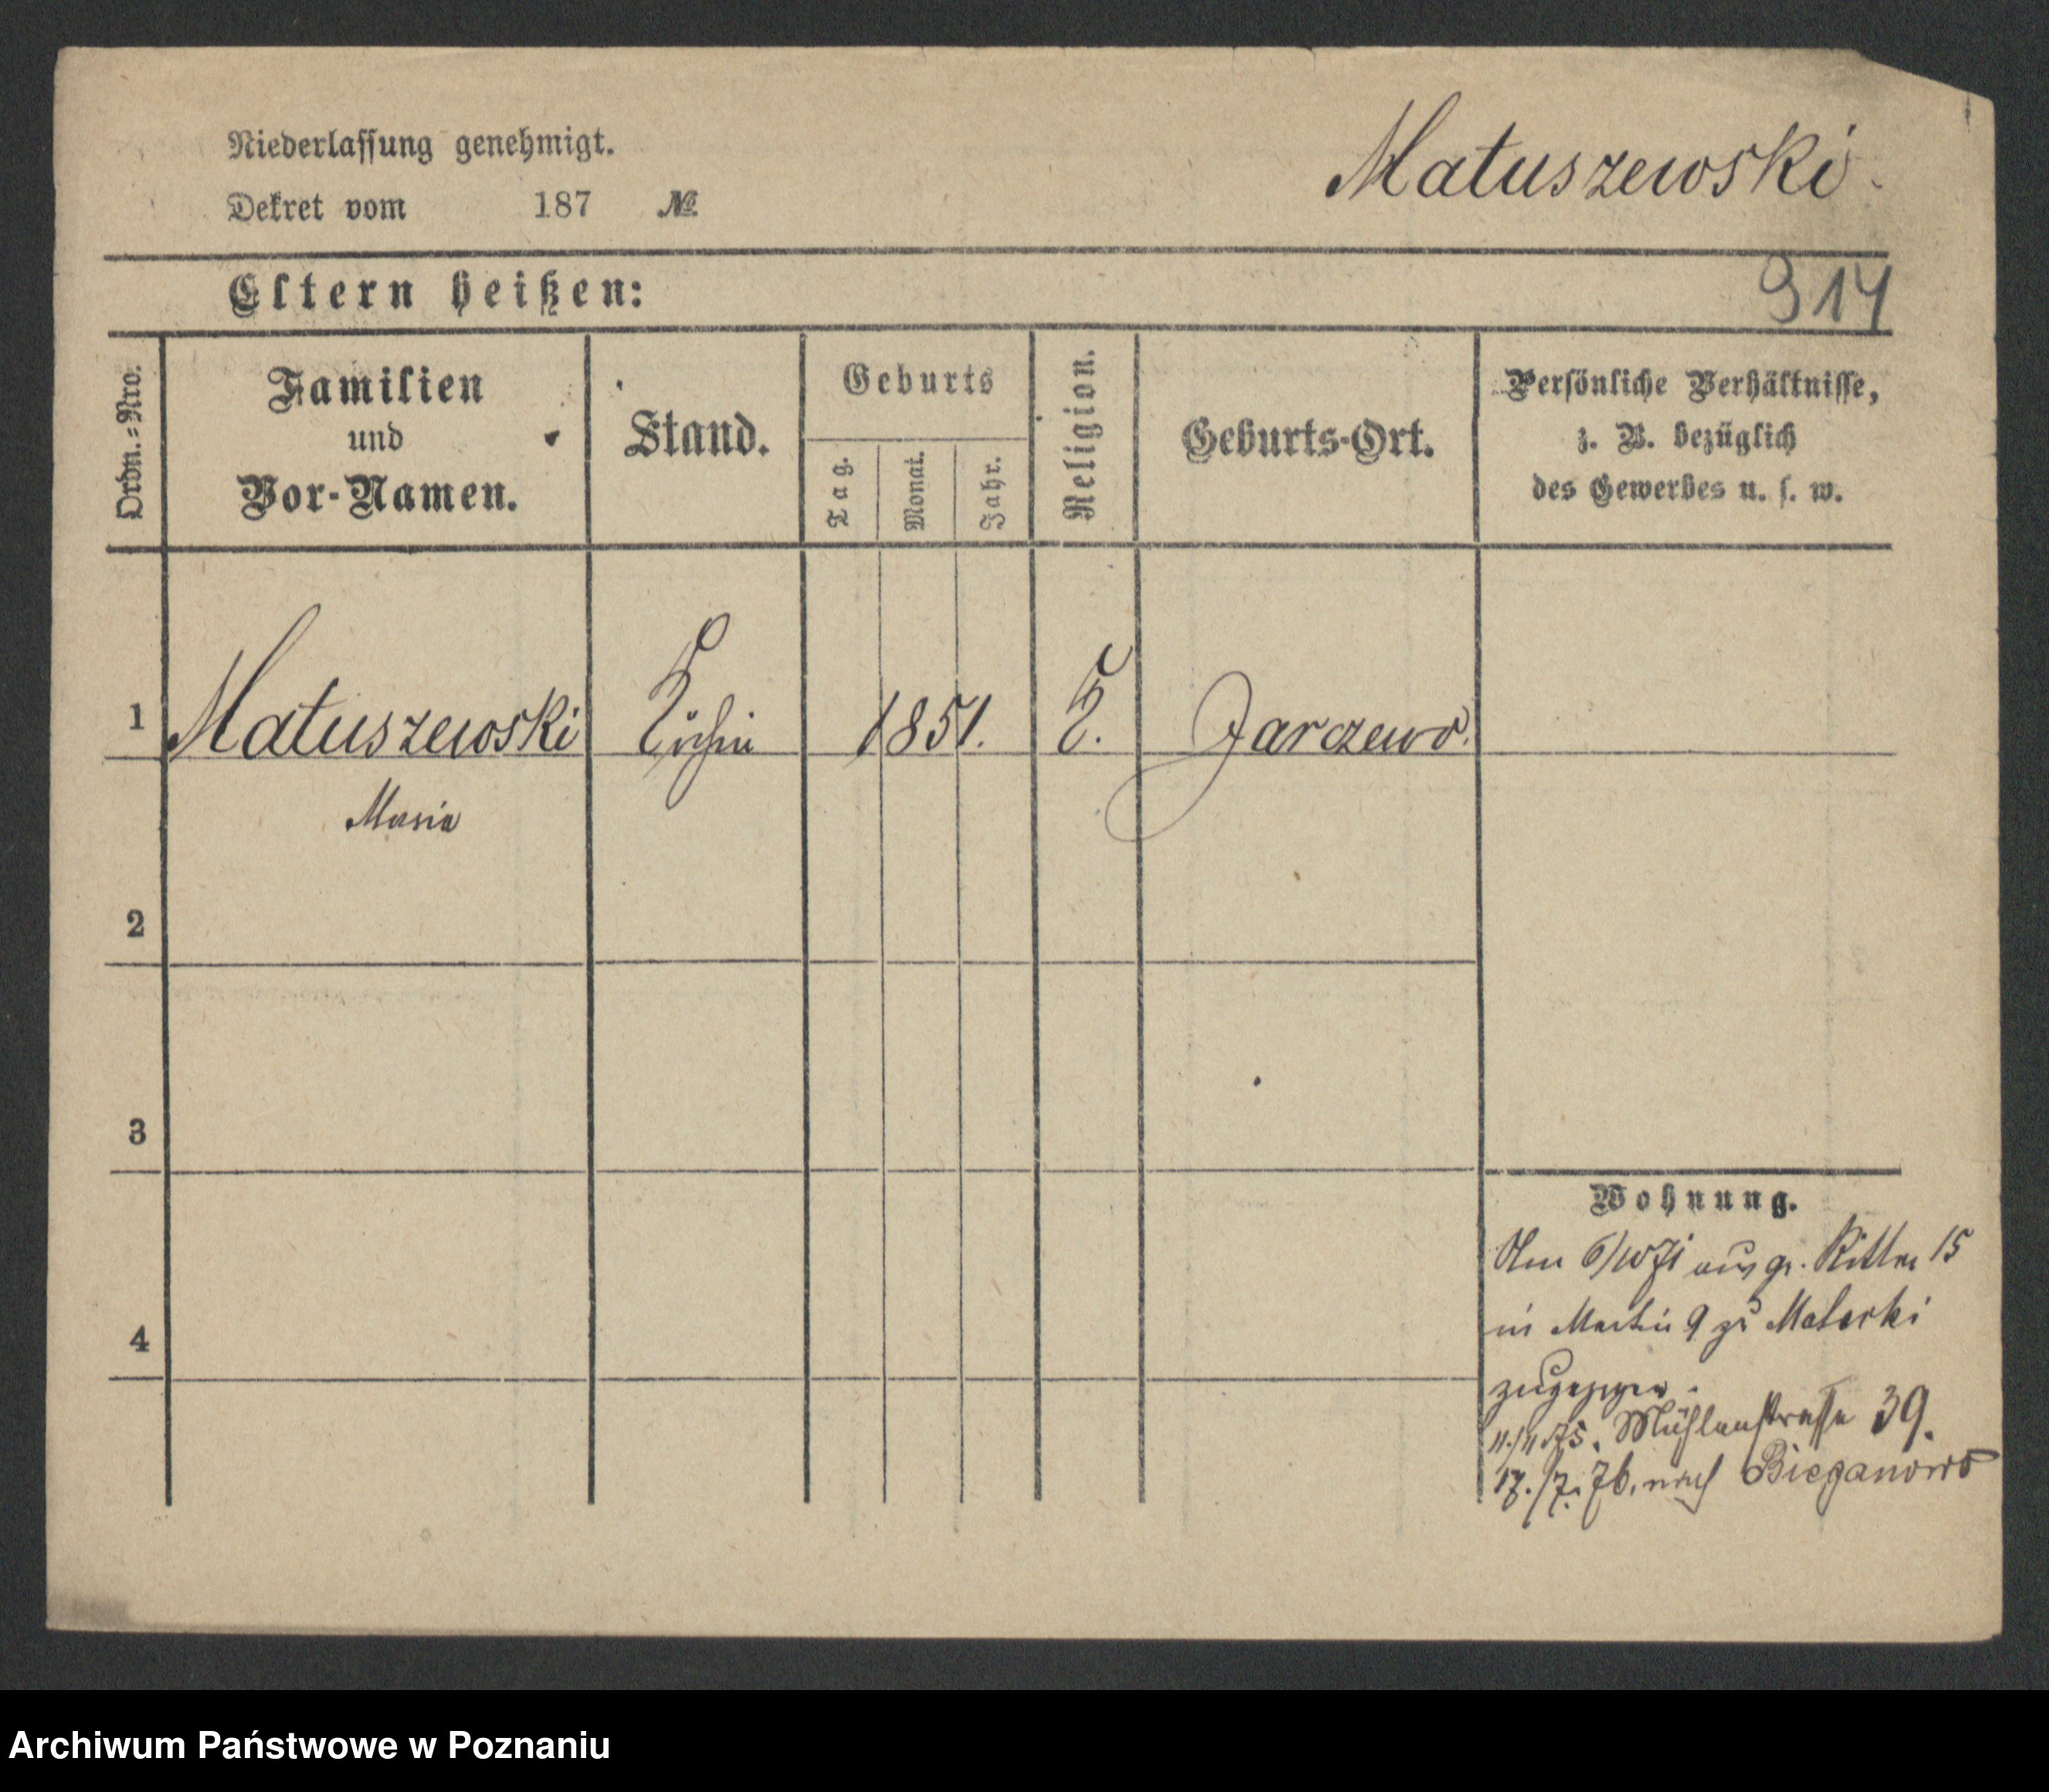 Niederlassung genehmigt.
Dekret vom 187 №
Matuszewski.
Eltern heißen:
914
Ordn.-Nro.
Familien
und
Vor-Namen.
Stand.
Geburts
Tag.
Monat.
Jahr.
Religion.
Geburts-Ort.
Persönliche Verhältnisse,
z. B. bezüglich
des Gewerbes u. s. w.
1 Matuszewski Köchin 1851. K. Jarczewo.
Maria
2
3
4
Wohnung.
Am aus gr. Ritter 15
in Martin 9 zu
zugezogen.
11./11 75. Mühlenstrasse 39.
17./7. 76. nach Bieganowo
Archiwum Państwowe w Poznaniu